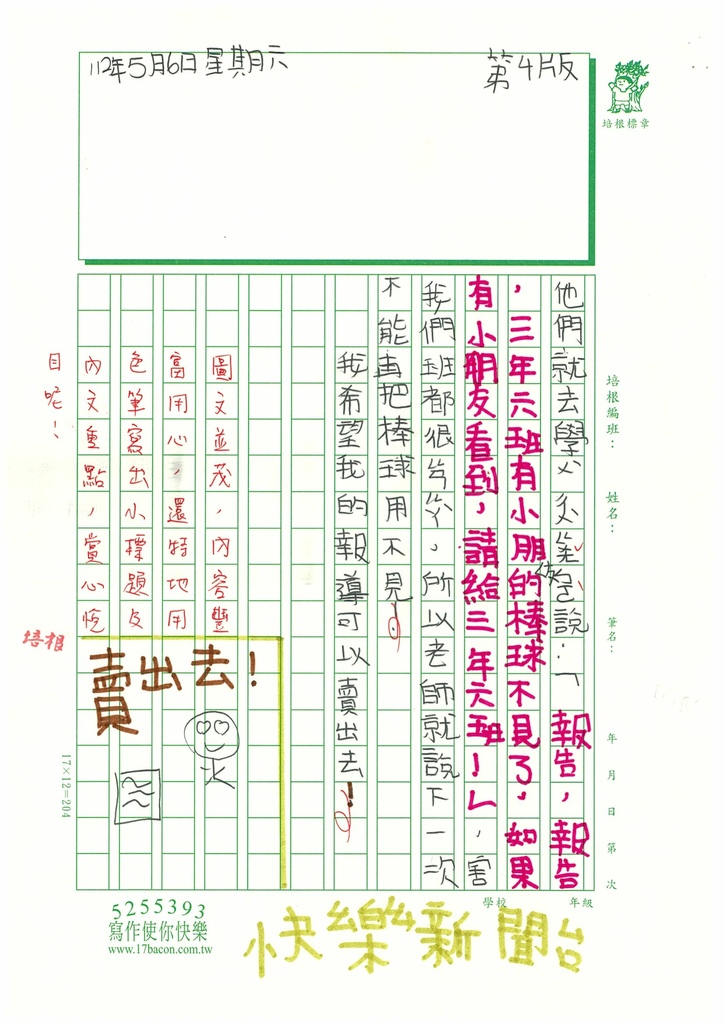 112年5月6日星期六
第4版
培根標章
培根編班：
姓名：
筆名：
年 月 日第 次
他們就去學ㄨ說：「報告，報告
，三年六班有小朋的棒球不見了，如果
有小朋友看到，請給三年六班！」，害
我們班都很ㄕㄥ，所以老師就說下一次
不能再把棒球用不見！
我希望我的報導可以賣出去！
圖文並茂，內容豐
富用心，還特地用
色筆寫出小標題及
內文重點，賞心悅
目呢！
培根
賣出去！
17×12=204
學校
年級
5255393
寫作使你快樂
www.17bacon.com.tw
快樂新聞台